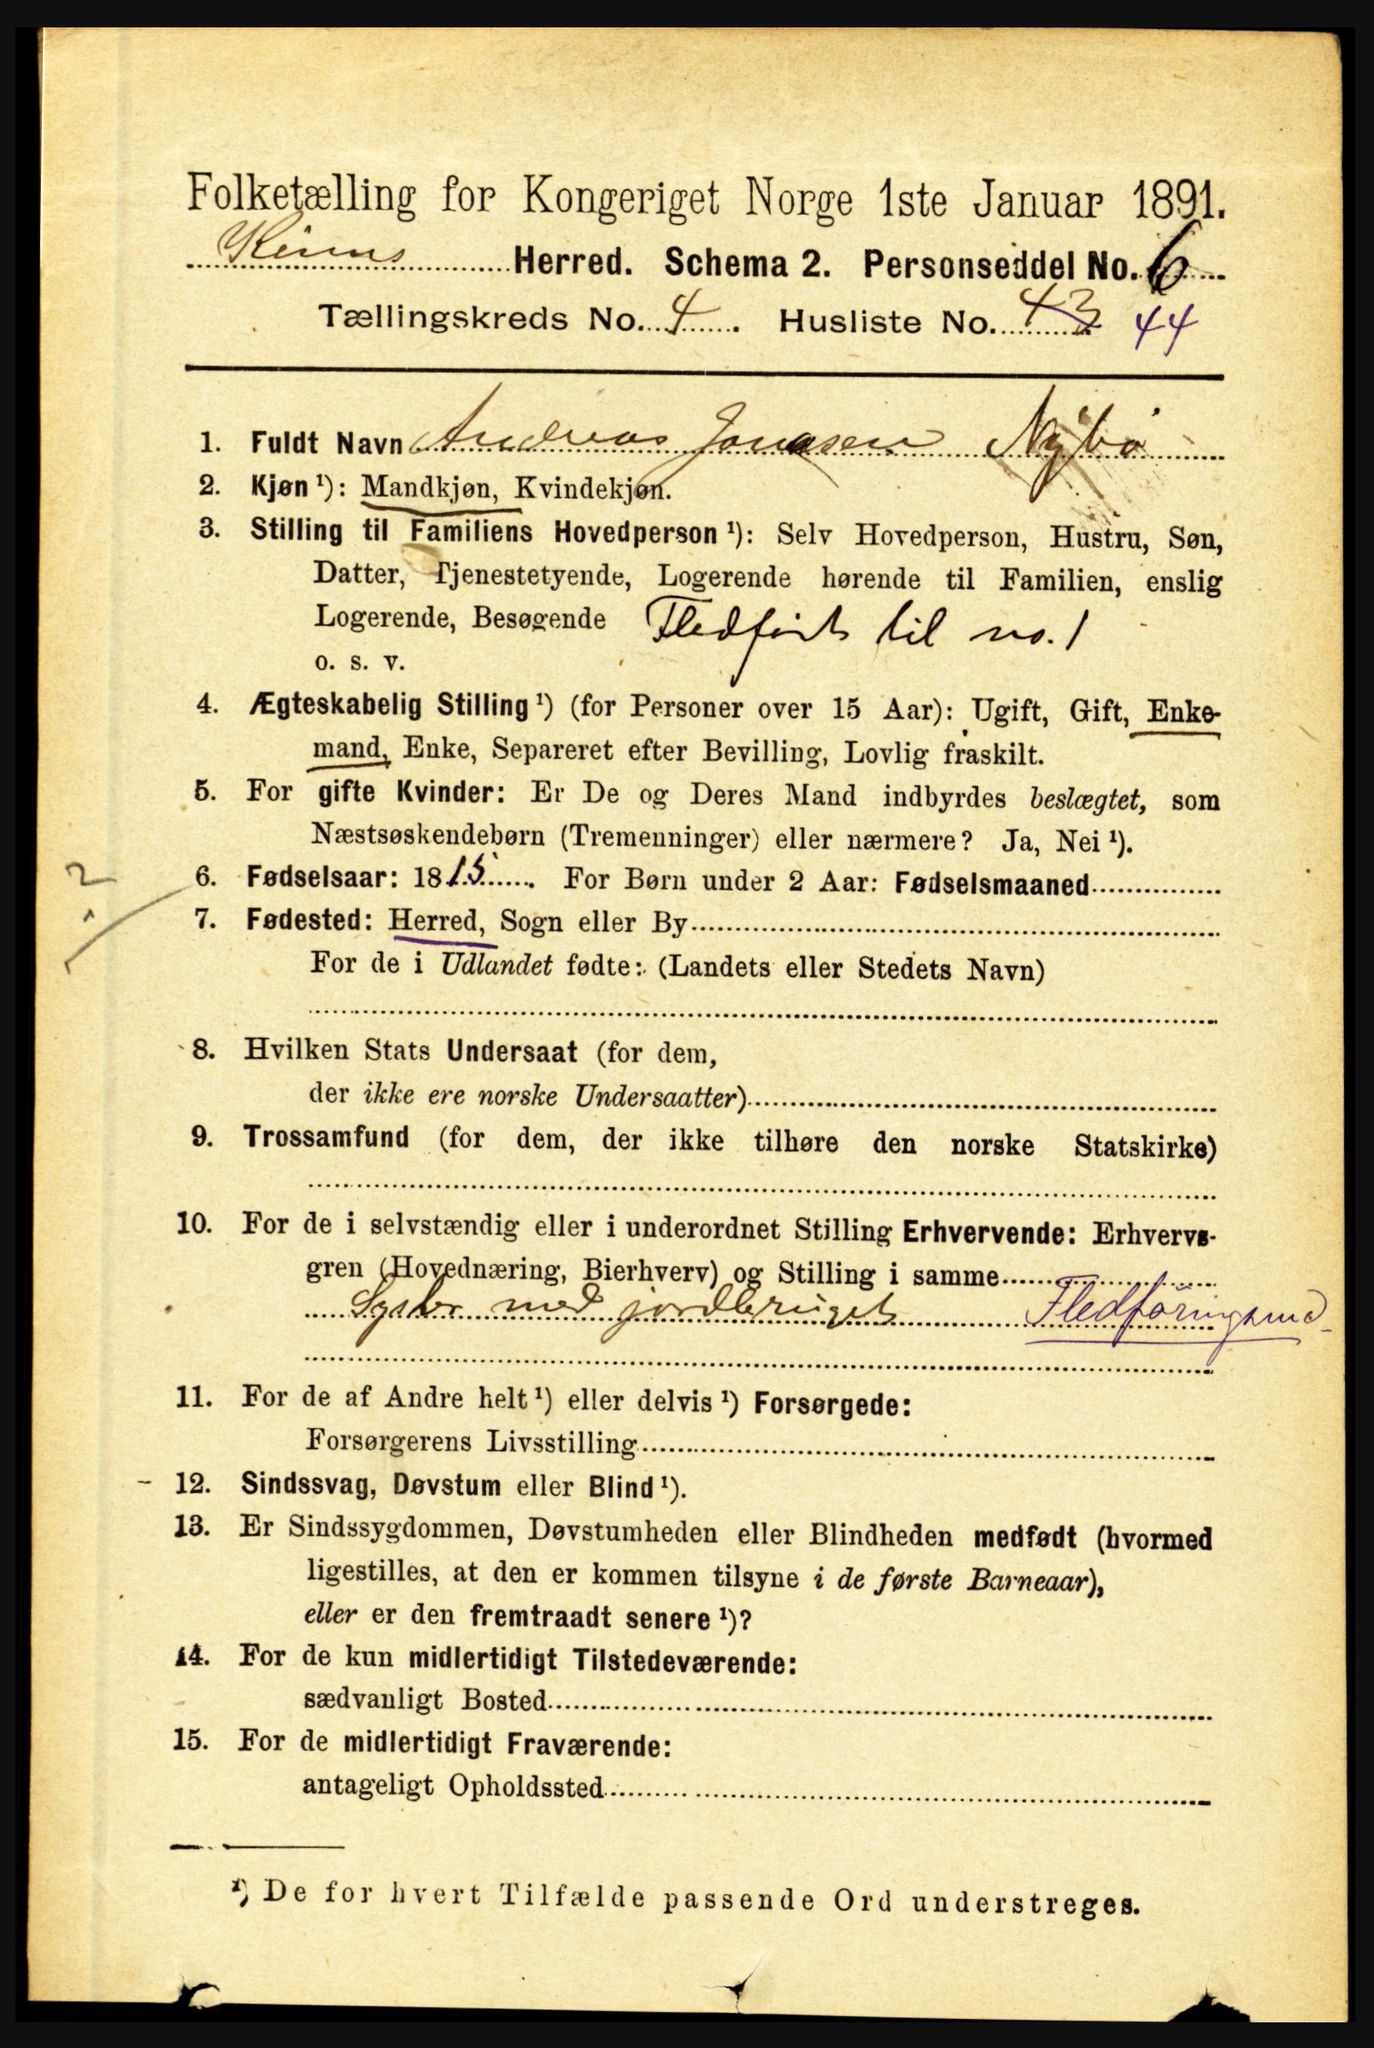 Folketælling for Kongeriget Norge 1ste Januar 1891.
Kinns Herred. Schema 2. Personseddel No. 6
Tællingskreds No. 4. Husliste No. 43 44
1. Fuldt Navn Andreas Jonasen Nybö
2. Kjøn ¹): Mandkjøn, Kvindekjøn.
3. Stilling til Familiens Hovedperson ¹): Selv Hovedperson, Hustru, Søn,
Datter, Tjenestetyende, Logerende hørende til Familien, enslig
Logerende, Besøgende Fledført til no. 1
o. s. v.
4. Ægteskabelig Stilling ¹) (for Personer over 15 Aar): Ugift, Gift, Enke-
mand, Enke, Separeret efter Bevilling, Lovlig fraskilt.
5. For gifte Kvinder: Er De og Deres Mand indbyrdes beslægtet, som
Næstsøskendebørn (Tremenninger) eller nærmere? Ja, Nei ¹).
2
6. Fødselsaar: 1815. For Børn under 2 Aar: Fødselsmaaned
7. Fødested: Herred, Sogn eller By
For de i Udlandet fødte: (Landets eller Stedets Navn)
8. Hvilken Stats Undersaat (for dem,
der ikke ere norske Undersaatter)
9. Trossamfund (for dem, der ikke tilhøre den norske Statskirke)
10. For de i selvstændig eller i underordnet Stilling Erhvervende: Erhvervs-
gren (Hovednæring, Bierhverv) og Stilling i samme
Sysler med jordbruget Fledföringsmd
11. For de af Andre helt ¹) eller delvis ¹) Forsørgede:
Forsørgerens Livsstilling
- 12. Sindssvag, Døvstum eller Blind ¹).
13. Er Sindssygdommen, Døvstumheden eller Blindheden medfødt (hvormed
ligestilles, at den er kommen tilsyne i de første Barneaar),
eller er den fremtraadt senere ¹)?
14. For de kun midlertidigt Tilstedeværende:
sædvanligt Bosted
15. For de midlertidigt Fraværende:
antageligt Opholdssted
¹) De for hvert Tilfælde passende Ord understreges.